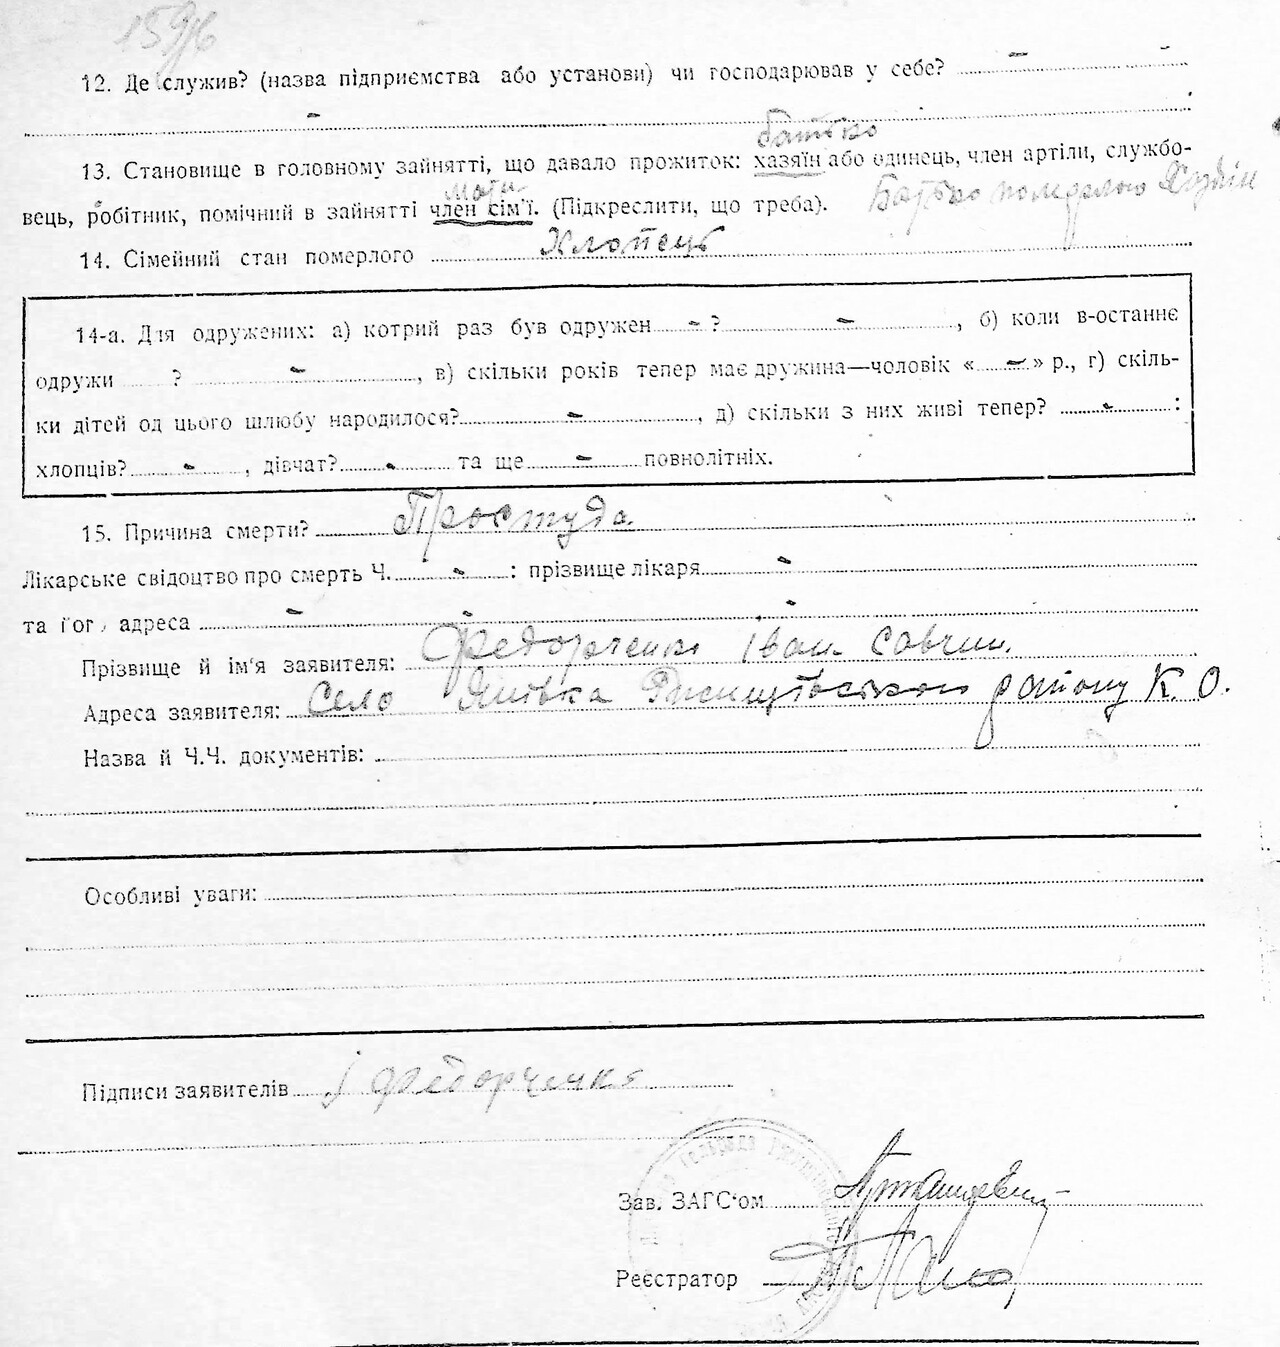 159б
12. Де служив? (назва підприємства або установи) чи господарював у себе? -
-
батько
13. Становище в головному зайнятті, що давало прожиток: хазяїн або одинець, член артіли, службо-
мати
вець, робітник, помічний в зайнятті член сім'ї. (Підкреслити, що треба). Батько Хазяїн
14. Сімейний стан померлого Хлопець
14-а. Для одружених: а) котрий раз був одружен - ? -, б) коли в-останнє
одружи ? -, в) скільки років тепер має дружина—чоловік « - » р., г) скіль-
ки дітей од цього шлюбу народилося? -, д) скільки з них живі тепер? - :
хлопців? -, дівчат? - та ще - повнолітніх.
15. Причина смерти? Простуда
Лікарське свідоцтво про смерть Ч. - : прізвище лікаря -
та його адреса - - -
Прізвище й ім'я заявителя: Федорченко Іван Савчин.
Адреса заявителя: Село Янівка району К. О.
Назва й Ч.Ч. документів:
Особливі уваги:
Підписи заявителів І Федорченко
Зав. ЗАГС'ом
Реєстратор